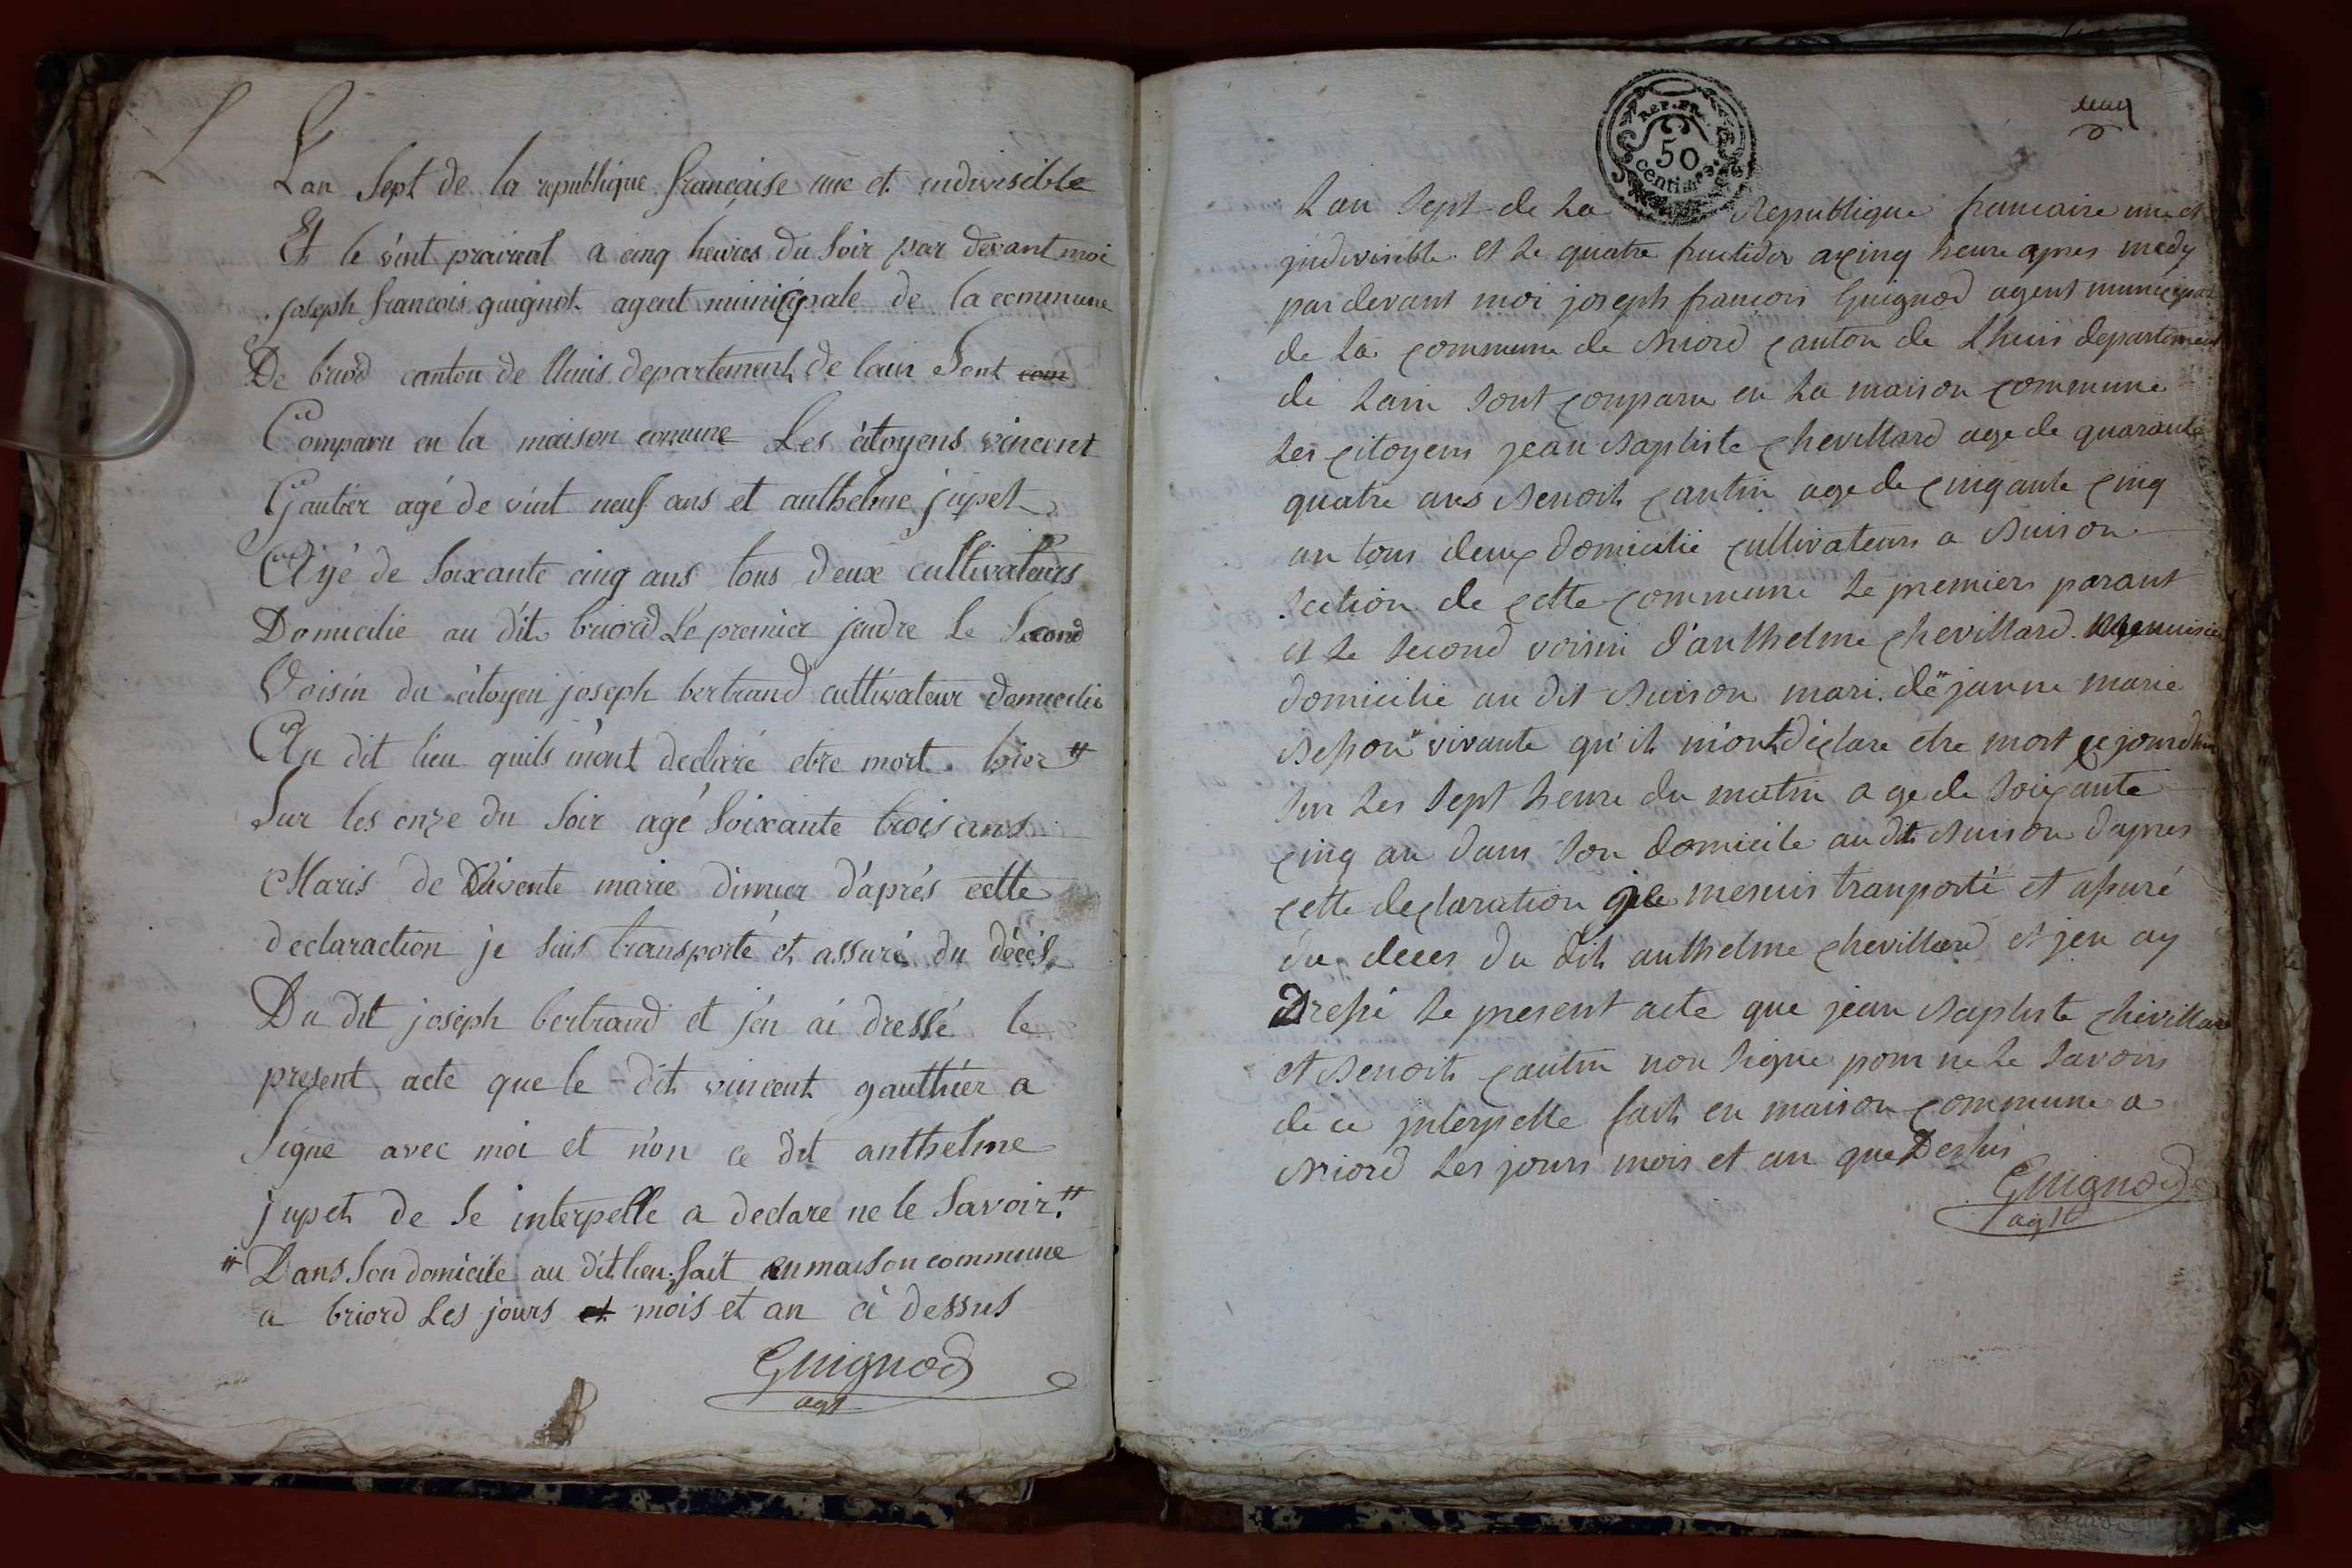 Lan Sept de la republique francaise une et indivisible
Et le vint prairial a cinq heures du Soir par devant moi
joseph francois guignot agent municipale de la commune
De briord canton de lhuis departement de lain Sont com
Comparu en la maison comune Les citoyens vincent
Gautier agé de vint neuf ans et anthelme jupet
Agé de Soixante cinq ans tous deux cultivateurs
Domicilie au dit briord Le premier jendre Le Second
Voisin du citoyen joseph bertrand cultivateur domicilie
Au dit lieu quils m'ont declaré etre mort hier #
Sur les onze du Soir agé Soixante trois ans
Maris de Vivente marie dimier d'aprés cette
declaraction je Suis transporté et assuré du décés
Du dit joseph bertrand et j'en ai dressé le
present acte que le dit vincent gauthier a
Signe avec moi et non ce dit anthelme
jupet de Se interpelle a declare ne le Savoir #
# Dans Son domicile au dit lieu. fait en maison commune
a briord Les jours et mois et an ci dessus
Guignod
agt
REP. FR.
50
Centimes
Lan Sept de La Republique francaise une et
jndivisible et Le quatre fructidor a cinq heure apres medy
par devant moi joseph francois Guignod agent municipal
de La commune de Briord canton de Lhuis departement
de Lain Sont conparu en La maison commune
Les citoyens jean Baptiste chevillard age de quarante
quatre ans Benoit cantin age de cinqante cinq
an tous deux domicilie cultivateurs a Buison
section de cette commune Le premiers parant
et Le Second voisin d'anthelme chevillard
domicilie au dit Buison mari de " janne marie
vivante qu'ils m'ont déclare etre mort ce jourdhui
Sur Les Sept heure du matin age de Soixante
cinq an dans Son domicile au dit Buison dapres
cette declaration je me suis tranporté et assuré
du deces du dit anthelme chevillard et jen ay
Dressé Le present acte que jean Baptiste chevillard
et Benoit cantin non Signe pour ne Le Savoir
de ce jnterpelle fait en maison commune a
Briord Les jours mois et an que Dessus
Guignod
agt